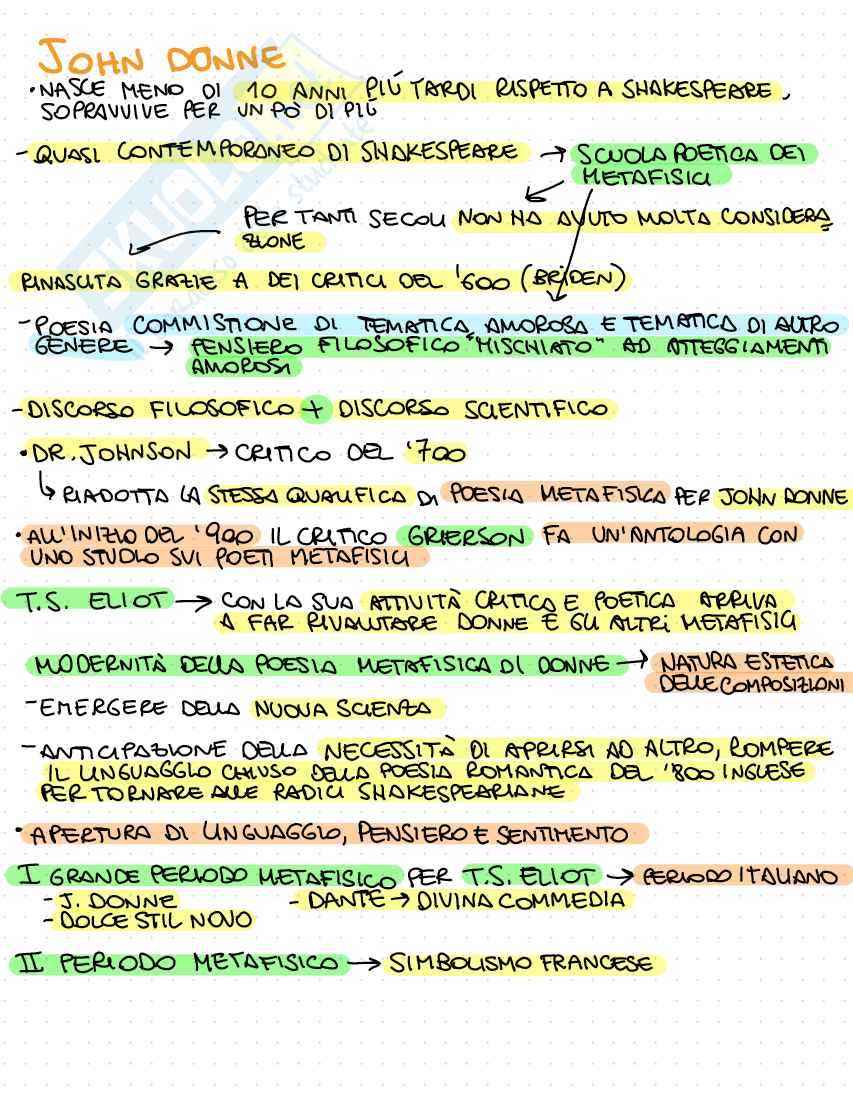 JOHN DONNE
• NASCE MENO DI 10 ANNI PIÚ TARDI RISPETTO A SHAKESPEARE,
SOPRAVVIVE PER UN PÒ DI PIÚ
- QUASI CONTEMPORANEO DI SHAKESPEARE → SCUOLA POETICA DEI
METAFISICI
PER TANTI SECOLI NON HA AVUTO MOLTA CONSIDERA
ZIONE
RINASCITA GRAZIE A DEI CRITICI DEL '600 (BRIDEN)
- POESIA COMMISTIONE DI TEMATICA AMOROSA E TEMATICA DI ALTRO
GENERE → PENSIERO FILOSOFICO "MISCHIATO" AD ATTEGGIAMENTI
AMOROSI
- DISCORSO FILOSOFICO + DISCORSO SCIENTIFICO
• DR. JOHNSON → CRITICO DEL '700
↳ RIADOTTA LA STESSA QUALIFICA DI POESIA METAFISICA PER JOHN DONNE
• ALL'INIZIO DEL '900 IL CRITICO GRIERSON FA UN'ANTOLOGIA CON
UNO STUDIO SUI POETI METAFISICI
T.S. ELIOT → CON LA SUA ATTIVITÀ CRITICA E POETICA ARRIVA
A FAR RIVALUTARE DONNE E GLI ALTRI METAFISICI
MODERNITÀ DELLA POESIA METAFISICA DI DONNE → NATURA ESTETICA
DELLE COMPOSIZIONI
- EMERGERE DELLA NUOVA SCIENZA
- ANTICIPAZIONE DELLA NECESSITÀ DI APRIRSI AD ALTRO, ROMPERE
IL LINGUAGGIO CHIUSO DELLA POESIA ROMANTICA DEL '800 INGLESE
PER TORNARE ALLE RADICI SHAKESPEARIANE
• APERTURA DI LINGUAGGIO, PENSIERO E SENTIMENTO
I GRANDE PERIODO METAFISICO PER T.S. ELIOT → PERIODO ITALIANO
- J. DONNE - DANTE → DIVINA COMMEDIA
- DOLCE STIL NOVO
II PERIODO METAFISICO → SIMBOLISMO FRANCESE